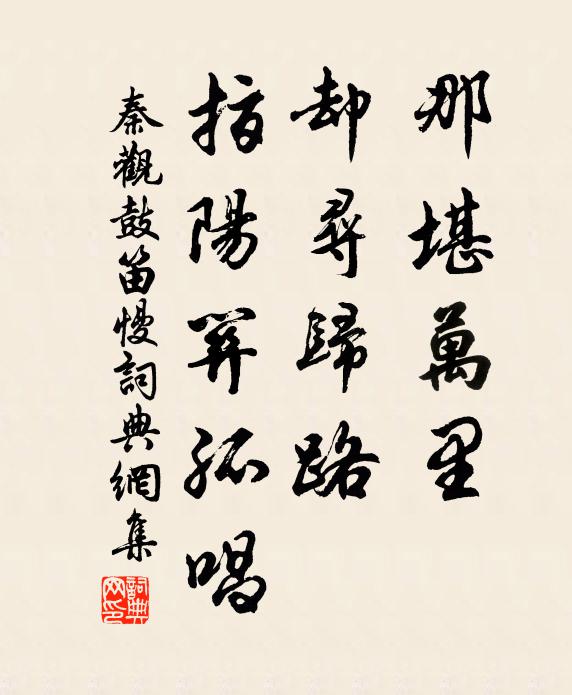 那堪萬里
却尋歸路
指陽關孤唱
秦觀鼓笛慢詞典網集
詞典网印